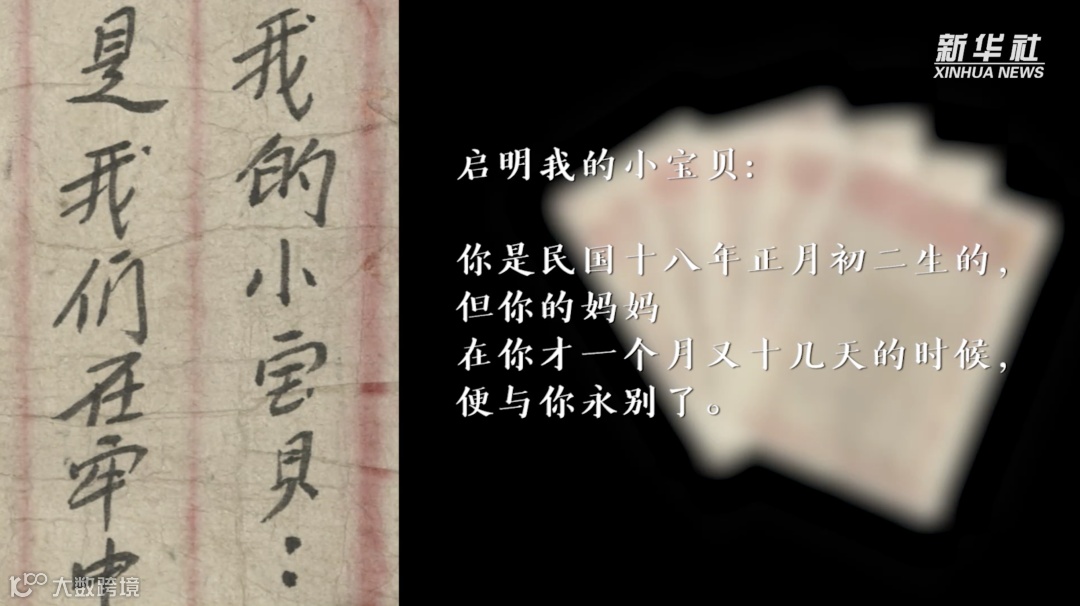 我的小宝贝：
是我们在牢中
新华社
XINHUA NEWS
启明我的小宝贝：
你是民国十八年正月初二生的，
但你的妈妈
在你才一个月又十几天的时候，
便与你永别了。
大数跨境